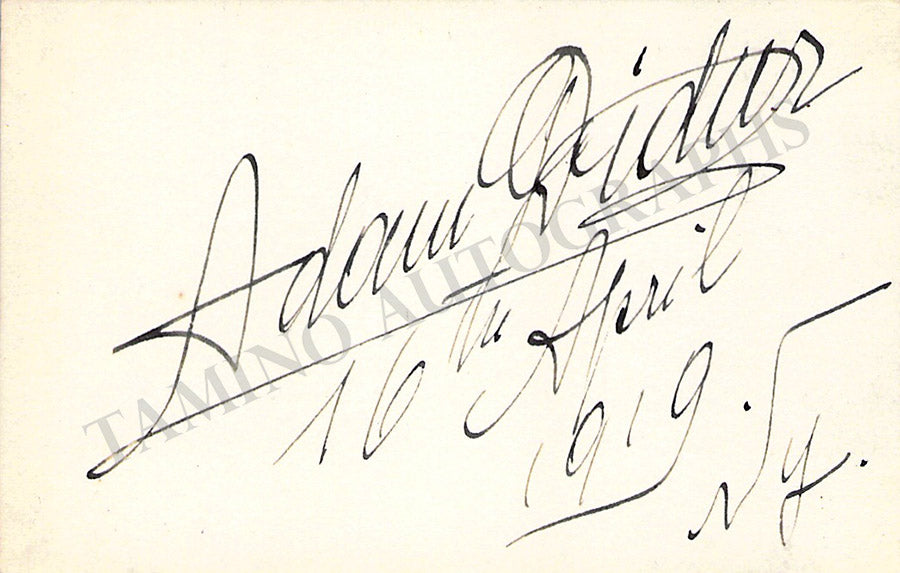 Adam Didur
16th April
1919. Ny.
TAMINO AUTOGRAPHS